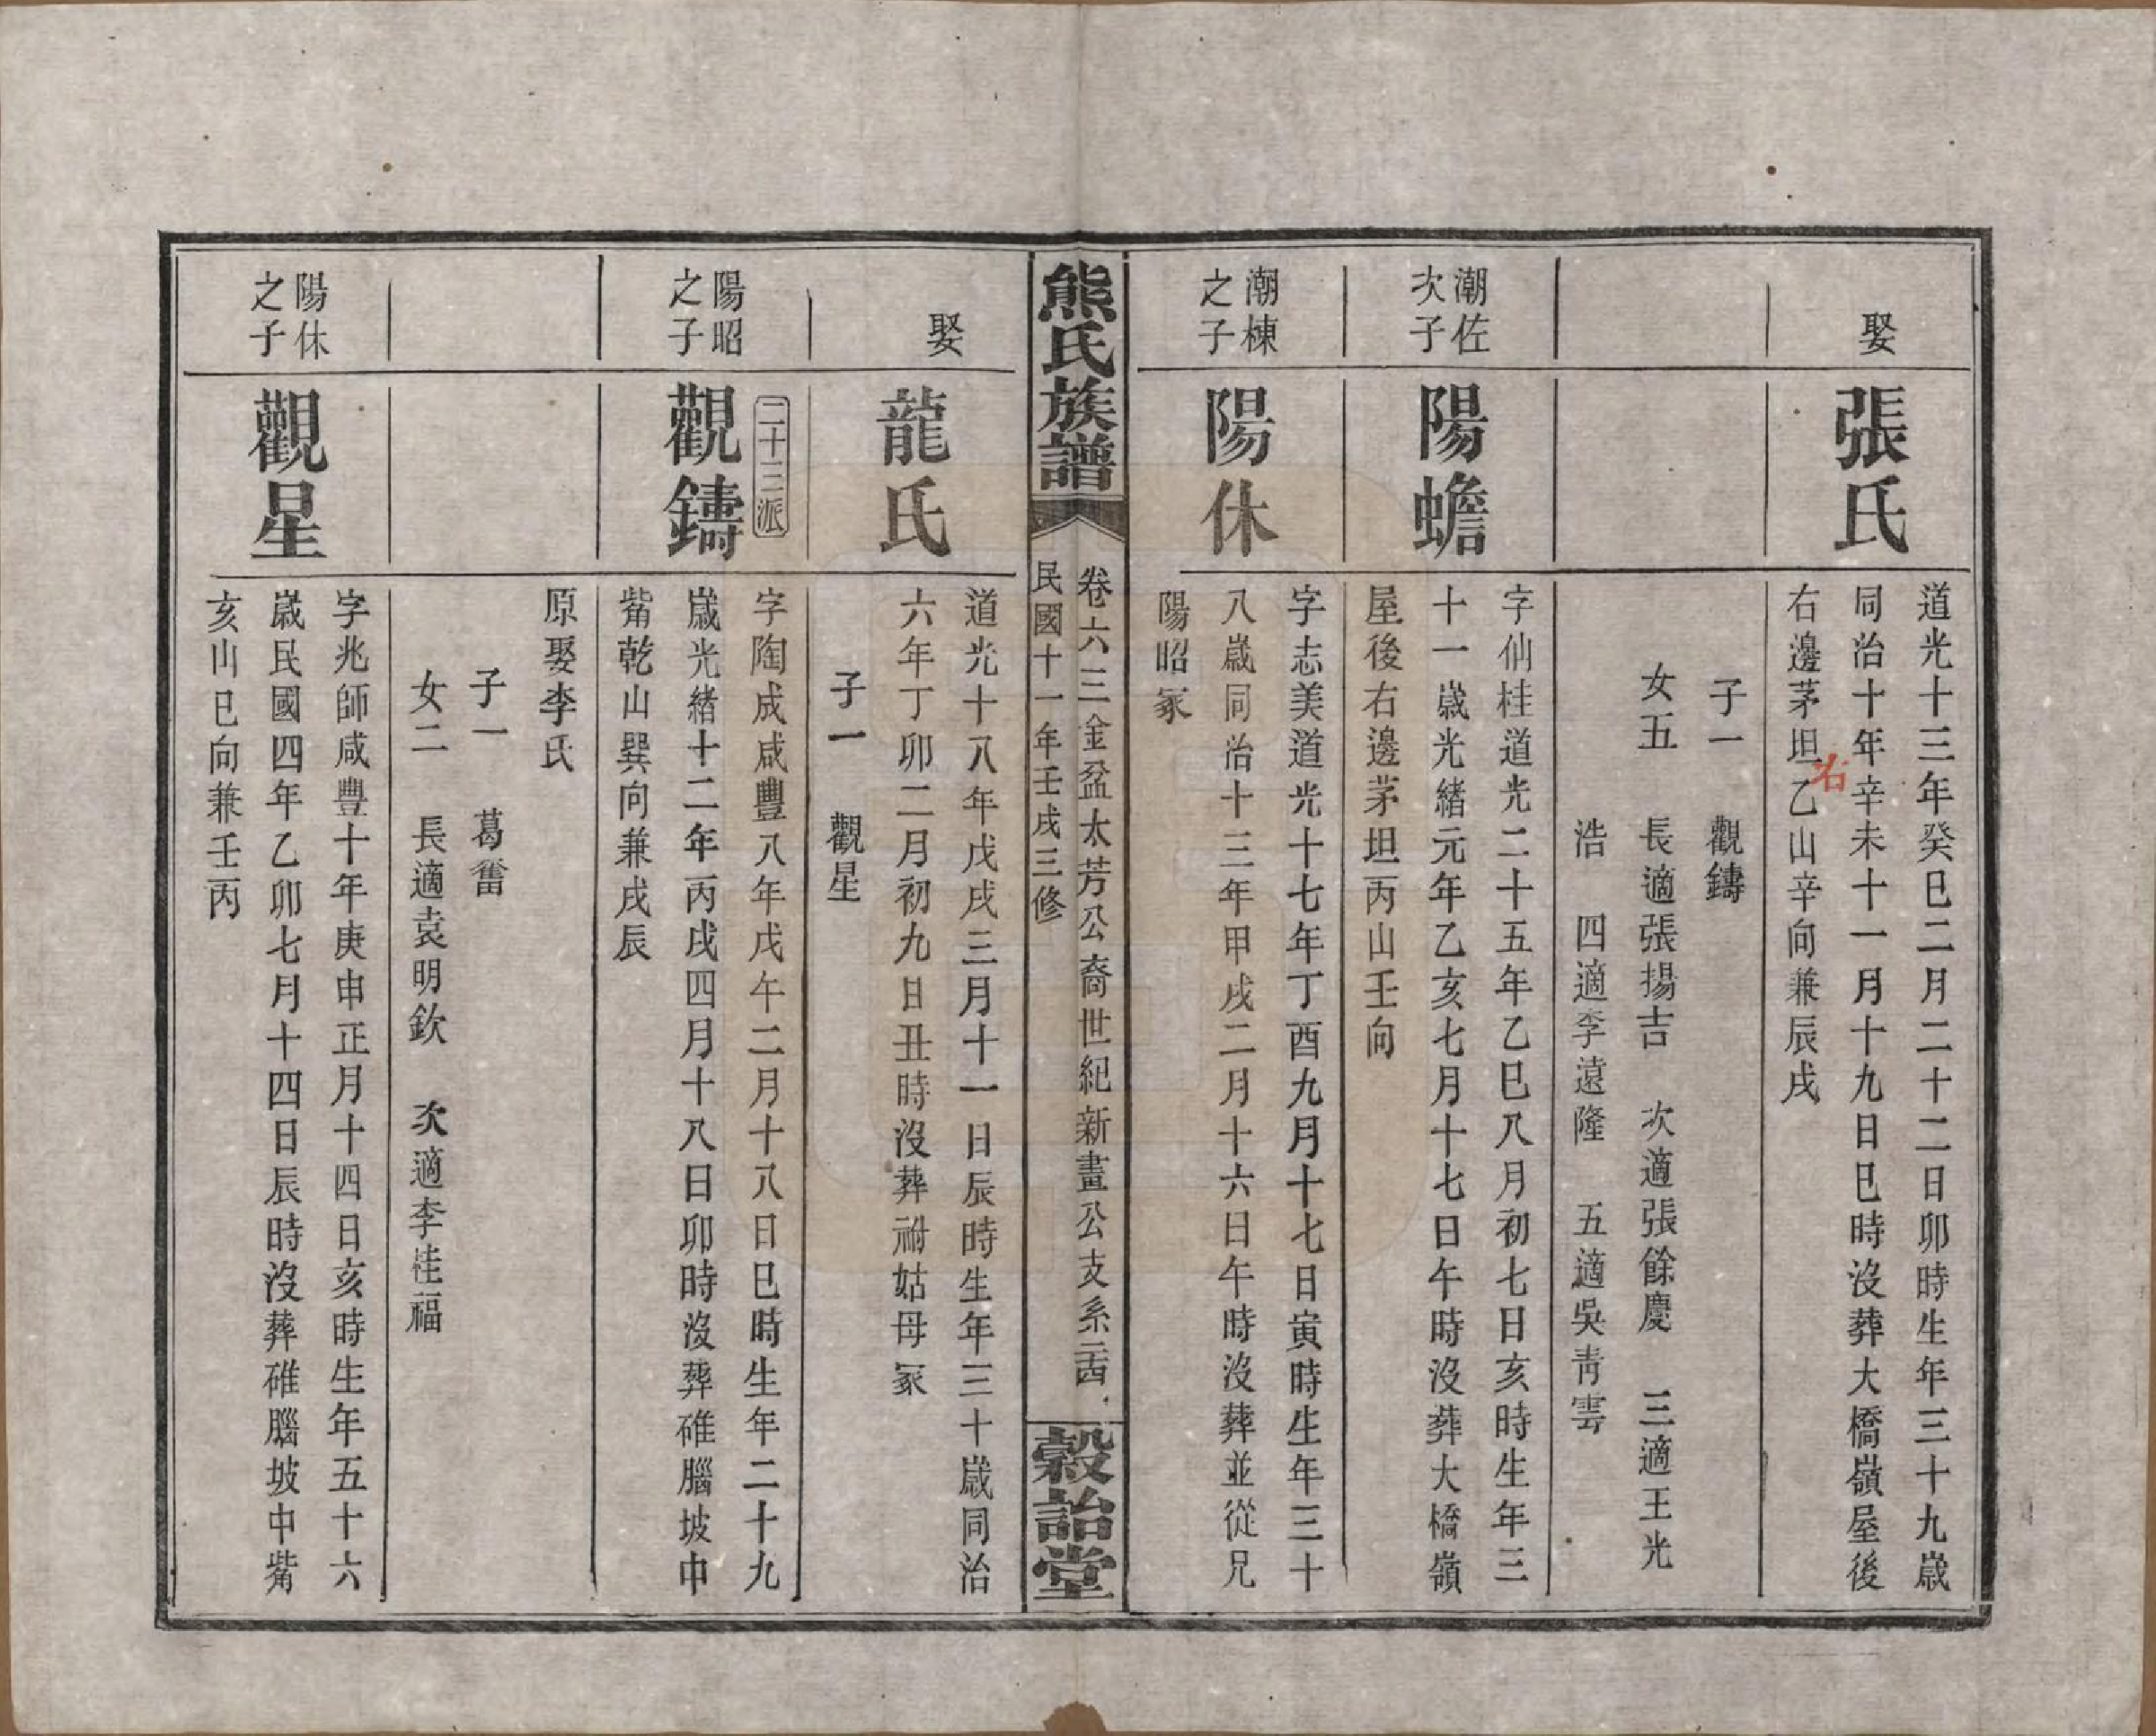 娶
張氏
道光十三年癸巳二月二十二日卯時生年三十九歲
同治十年辛未十一月十九日巳時沒葬大橋嶺屋後
右邊茅坦乙山辛向兼辰戌
右
子一　觀鑄
女五　長適張揚吉　次適張餘慶　三適王光
浩　四適李遠隆　五適吳靑雲
潮佐
次子
陽蟾
字仙桂道光二十五年乙巳八月初七日亥時生年三
十一歲光緖元年乙亥七月十七日午時沒葬大橋嶺
屋後右邊茅坦丙山壬向
潮棟
之子
陽休
字志美道光十七年丁酉九月十七日寅時生年三十
八歲同治十三年甲戌二月十六日午時沒葬並從兄
陽昭冢
熊氏族譜
卷六三金盆太芳公裔世紀新畫公支系
民國十一年壬戌三修
穀詒堂
娶
龍氏
道光十八年戊戌三月十一日辰時生年三十歲同治
六年丁卯二月初九日丑時沒葬祔姑母冢
子一　觀星
二十三派
陽昭
之子
觀鑄
字陶成咸豐八年戊午二月十八日巳時生年二十九
歲光緖十二年丙戌四月十八日卯時沒葬碓腦坡中
觜乾山巽向兼戌辰
原娶李氏
子一　葛畨
女二　長適袁明欽　次適李桂福
陽休
之子
觀星
字兆師咸豐十年庚申正月十四日亥時生年五十六
歲民國四年乙卯七月十四日辰時沒葬碓腦坡中觜
亥山巳向兼壬丙